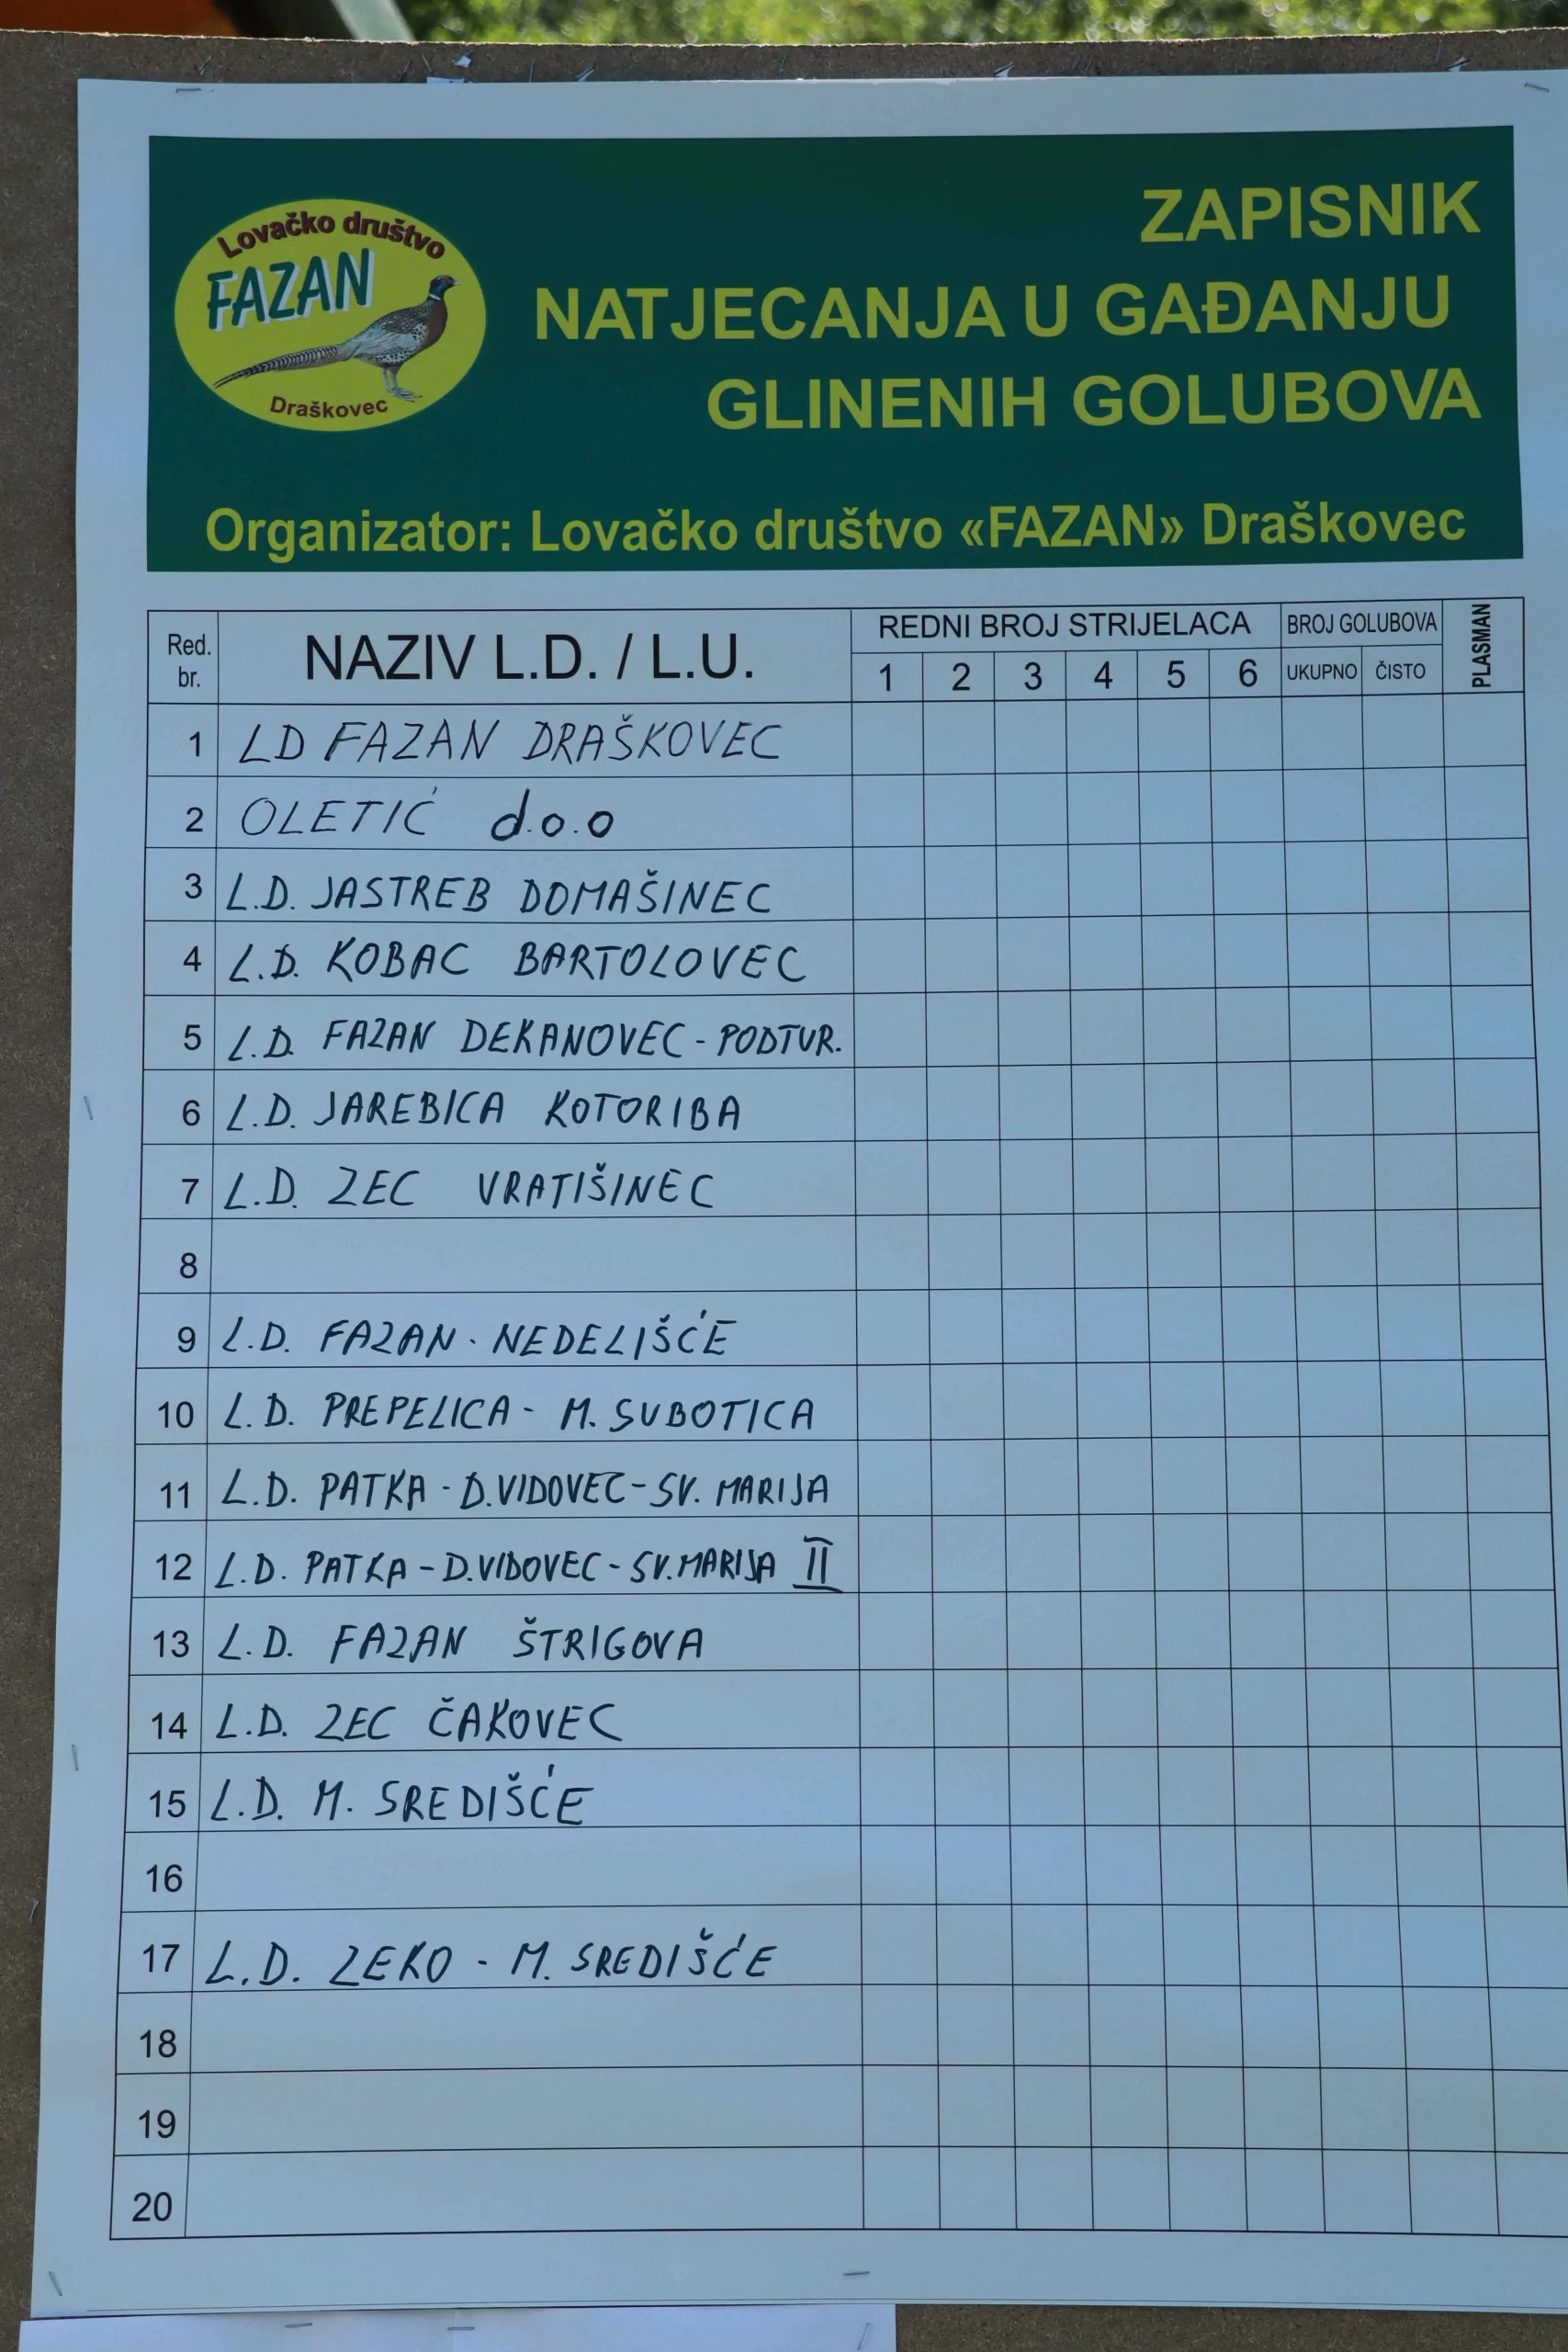 Lovačko društvo
FAZAN
Draškovec
ZAPISNIK
NATJECANJA U GAĐANJU
GLINENIH GOLUBOVA
Organizator: Lovačko društvo «FAZAN» Draškovec
Red. br. NAZIV L.D. / L.U. REDNI BROJ STRIJELACA BROJ GOLUBOVA PLASMAN
1 2 3 4 5 6 UKUPNO ČISTO
1 LD FAZAN DRAŠKOVEC
2 OLETIĆ d.o.o
3 L.D. JASTREB DOMAŠINEC
4 L.D. KOBAC BARTOLOVEC
5 L.D. FAZAN DEKANOVEC - PODTUR.
6 L.D. JAREBICA KOTORIBA
7 L.D. ZEC VRATIŠINEC
8
9 L.D. FAZAN - NEDELIŠĆE
10 L.D. PREPELICA - M. SUBOTICA
11 L.D. PATKA - D.VIDOVEC - SV. MARIJA
12 L.D. PATKA - D.VIDOVEC - SV.MARIJA II
13 L.D. FAZAN ŠTRIGOVA
14 L.D. ZEC ČAKOVEC
15 L.D. M. SREDIŠĆE
16
17 L.D. ZEKO - M. SREDIŠĆE
18
19
20